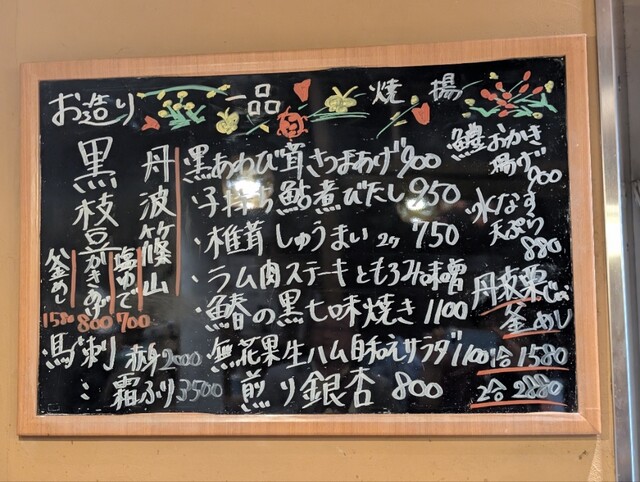 お造り 一品 焼 揚
丹波篠山
黒枝豆
塩ゆで 700
かきあげ 800
釜めし 1580
馬刺 赤身 2000
〃 霜ふり 3500
黒あわび茸さつまあげ 900
子持ち鮎煮びたし 950
椎茸しゅうまい 2ヶ 750
ラム肉ステーキともろみ味噌
鰆の黒七味焼き 1100
無花果生ハム白和えサラダ 1100
煎り銀杏 800
鱧おかき
揚げ 900
水なす
天ぷら
880
丹波栗
釜めし
1合 1580
2合 2880